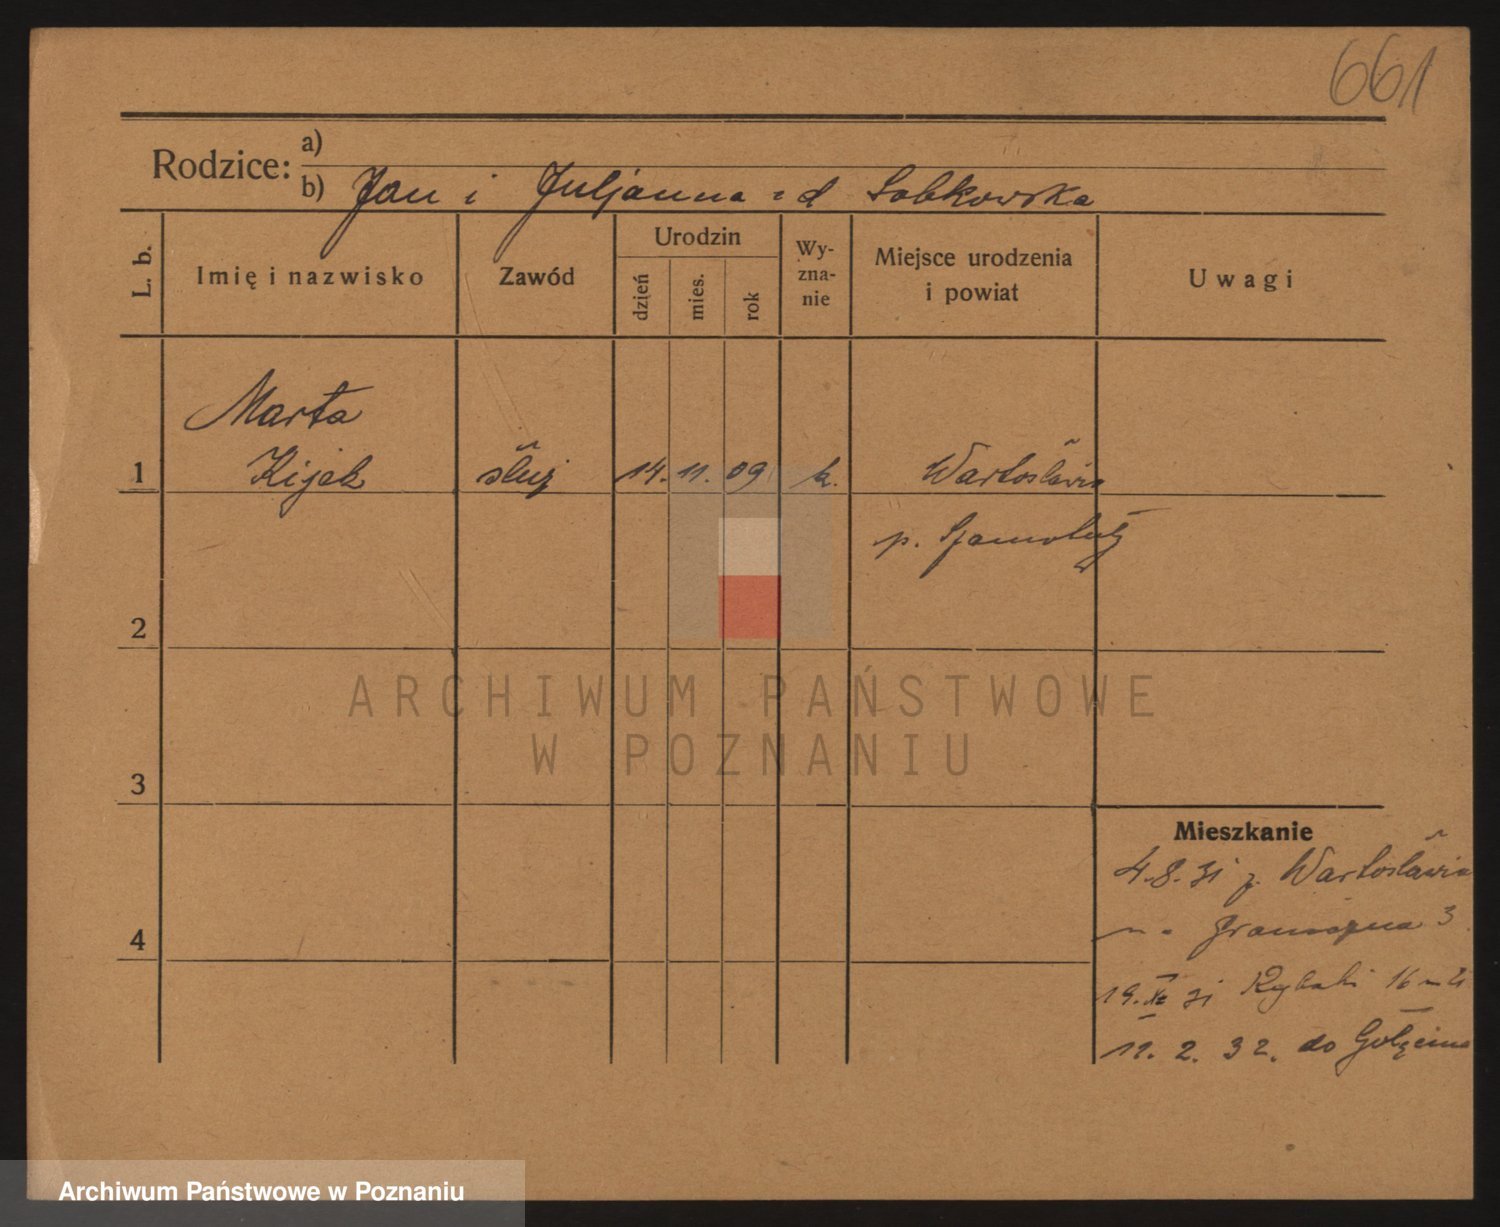 661
Rodzice: a)
b) Jan i Juljanna z d Sobkowska
L. b.
Imię i nazwisko
Zawód
Urodzin
dzień
mies.
rok
Wy-
zna-
nie
Miejsce urodzenia
i powiat
Uwagi
Marta
1 Kijek służ 14. 11. 09 k. Wartosław
p. Szamotuły
2
3
4
Mieszkanie
4.8.31 z Wartosławia
19. XI 31 Rybaki 16
11. 2. 32. do Golęcina
ARCHIWUM PAŃSTWOWE
W POZNANIU
Archiwum Państwowe w Poznaniu